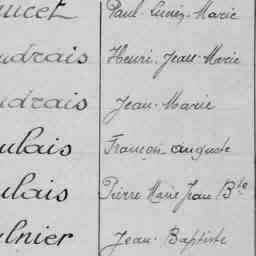 ucet Paul-Aimée-Marie
udrais Henri-Jean-Marie
udrais Jean-Marie
ulais François-auguste
ulais Pierre Marie Jean Bte
ulnier Jean-Baptiste